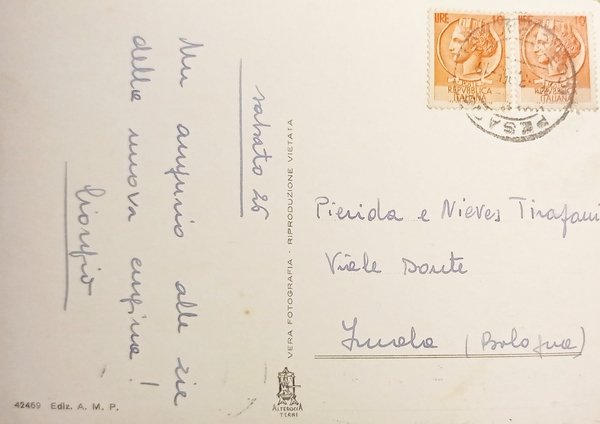 sabato 26
Un augurio alle zie
della nuova cugina!
Giorgio
VERA FOTOGRAFIA - RIPRODUZIONE VIETATA
ALTEROCCA
TERNI
42469 Ediz. A. M. P.
LIRE 10
REPVBBLICA
ITALIANA
LIRE 10
REPVBBLICA
ITALIANA
PESA
Pierida e Nieves Tirafani
Viale Dante
Imola (Bologna)